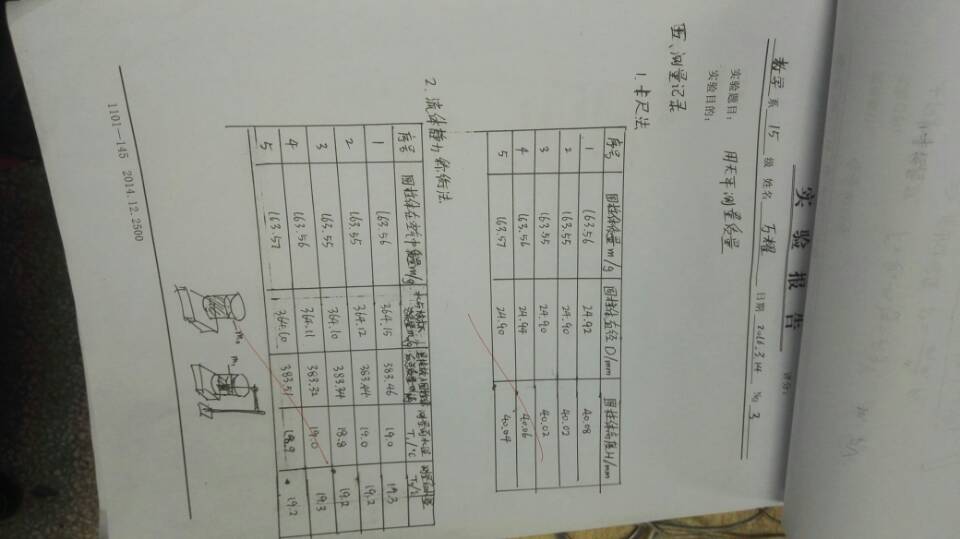 实 验 报 告
评分:
数学 系 15 级 姓名 万耀 日期 2016.3.14 No 3
实验题目: 用天平测量质量
实验目的:
五、测量记录
1. 卡尺法
序号 圆柱体质量m/g 圆柱体直径D/mm 圆柱体高度H/mm
1 163.56 24.92 40.08
2 163.55 24.90 40.02
3 163.55 24.90 40.02
4 163.56 24.94 40.06
5 163.57 24.90 40.04
2. 流体静力称衡法
序号 圆柱体在空气中质量m/g
1 163.56 364.15 383.46 19.0 19.3
2 163.55 364.12 383.44 19.0 19.2
3 163.55 364.10 383.34 18.8 19.2
4 163.56 364.11 383.32 19.0 19.3
5 163.57 364.10 383.51 18.9 19.2
1101—145 2014.12.2500